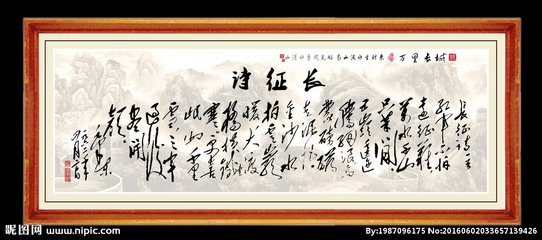 万里长城
长征诗
长征诗一首
红军不怕
远征难
万水千山
只等闲
五岭逶迤
腾细浪乌
蒙磅礴
走泥丸
金沙水
拍云崖
暖大渡
桥横铁索
寒更喜
岷山千里
雪三军
过后
尽开
颜
毛泽东
昵图网 www.nipic.com
By:1987096175 No:20160602033657139426